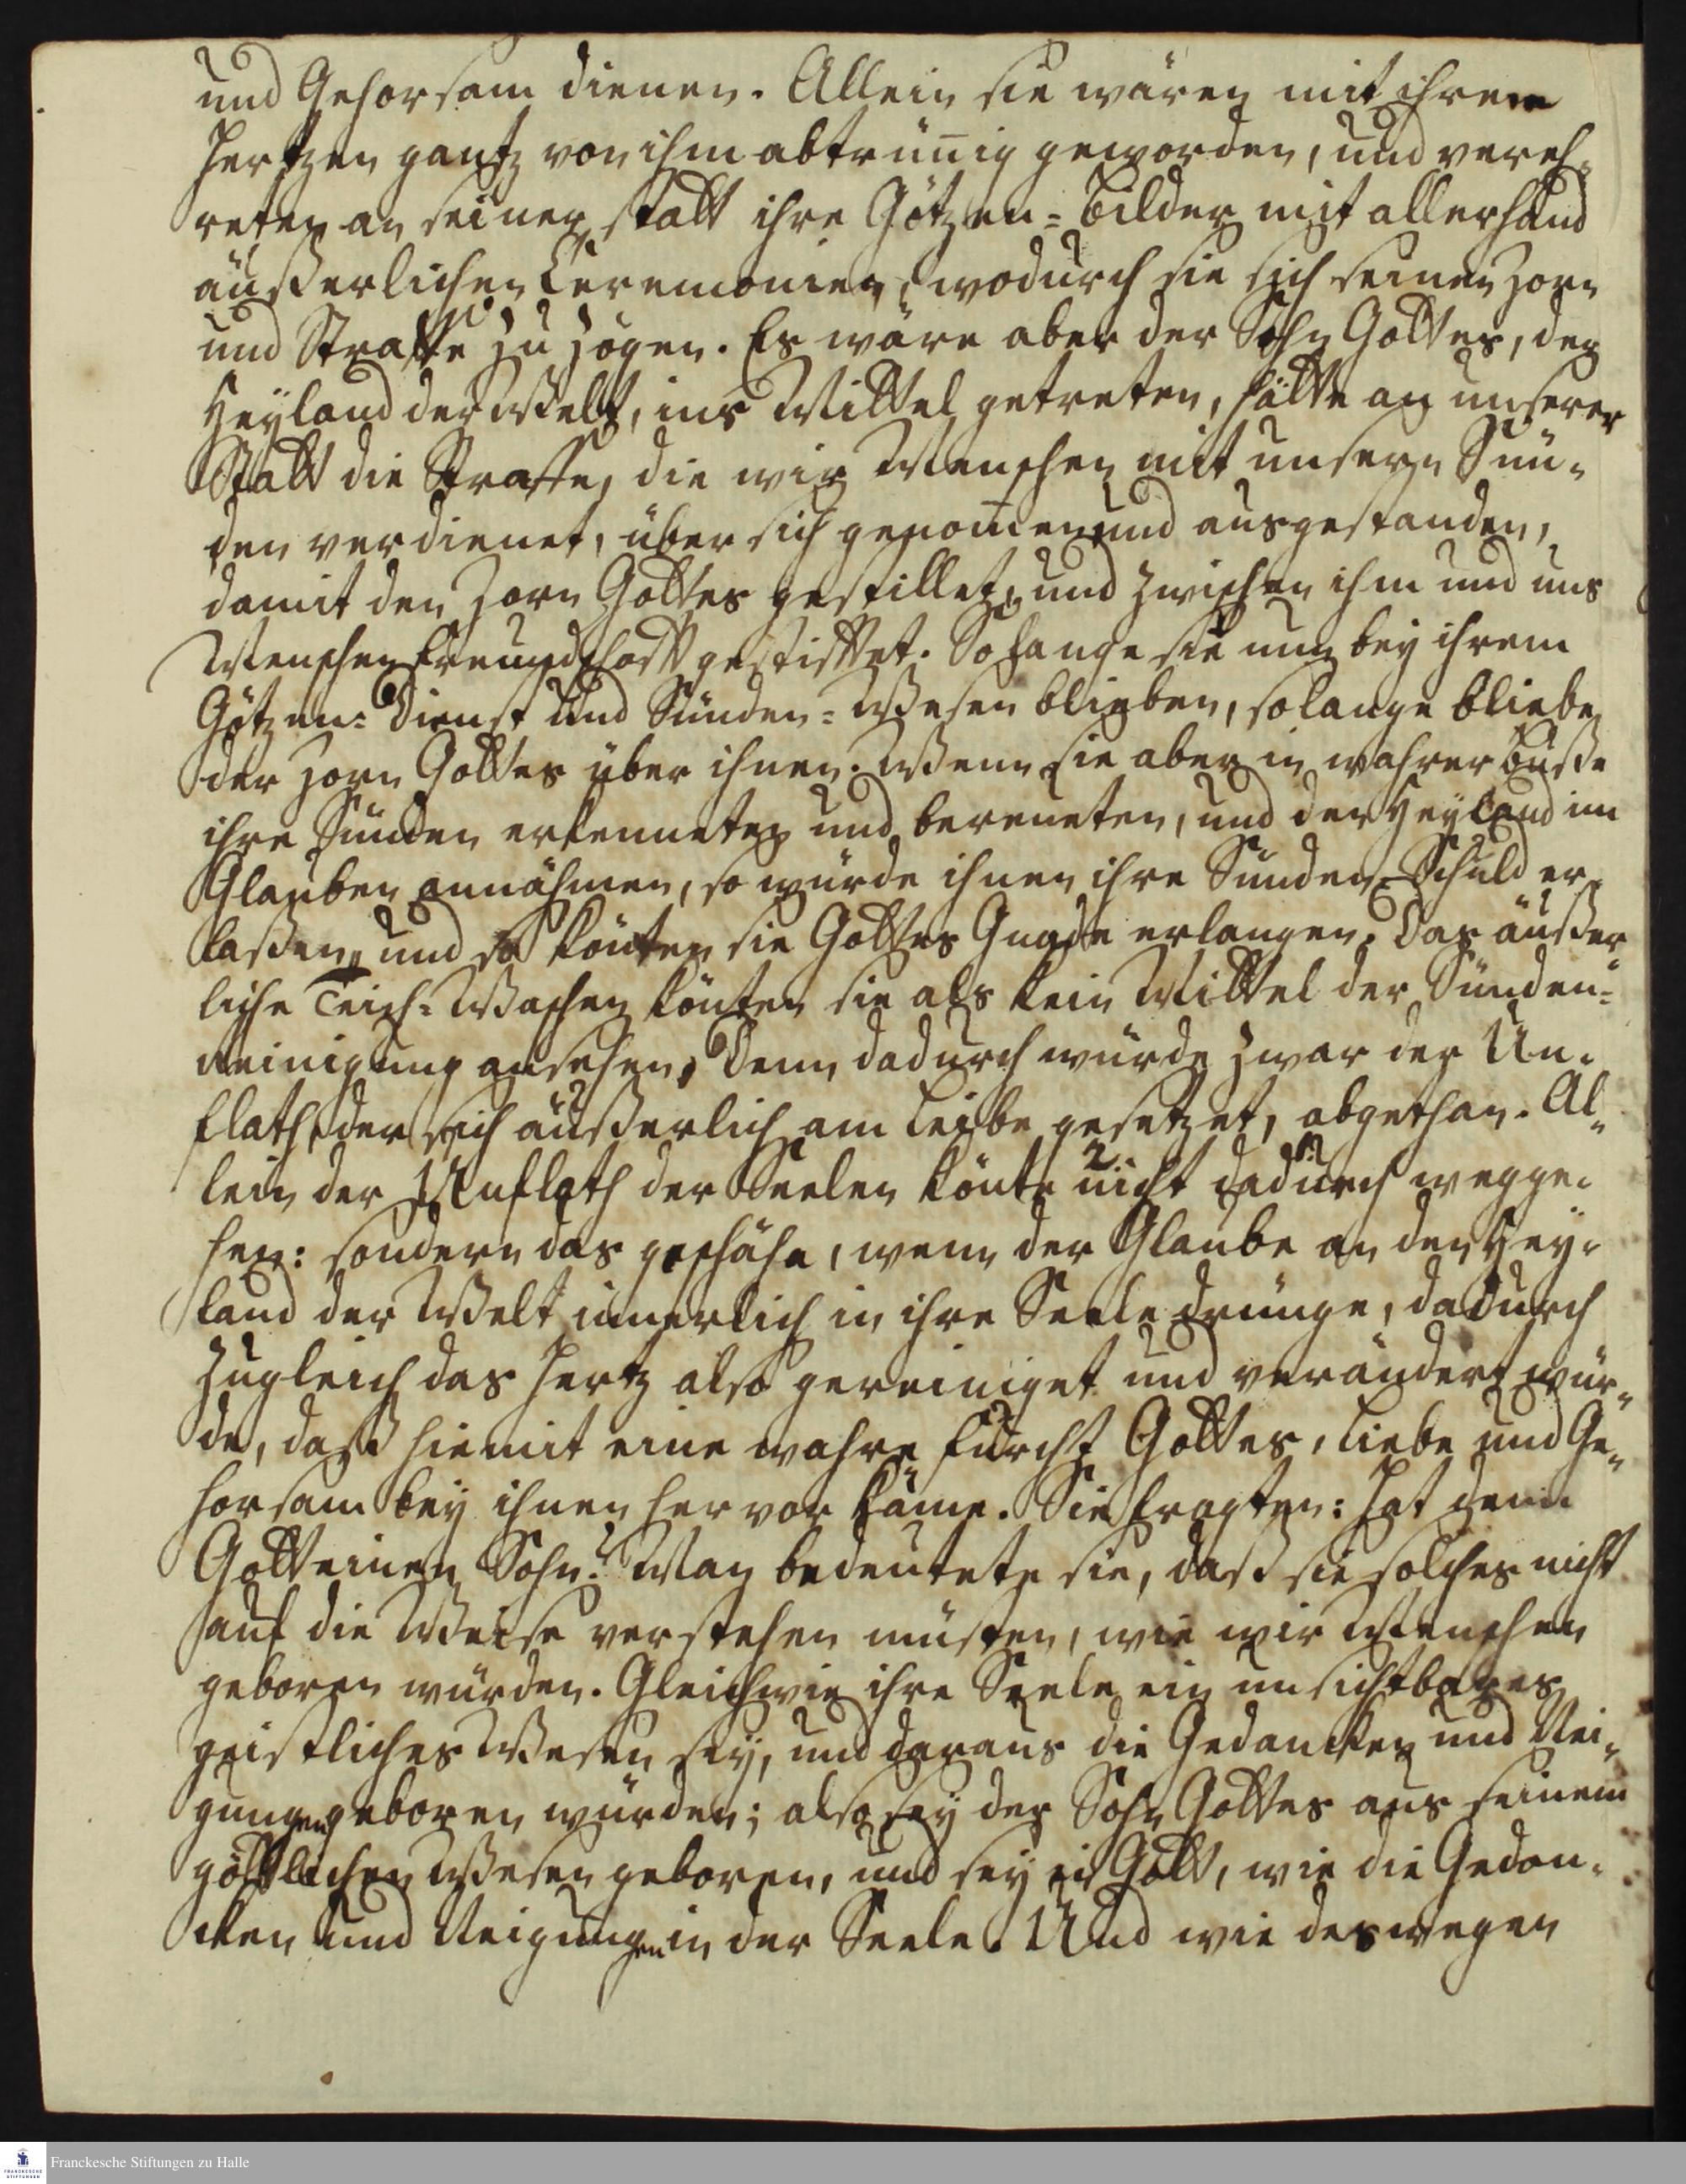 und Gehorsam dienen. Allein sie wären mit ihrem
Hertzen gantz von ihm abtrün̄ig geworden, und vereh-
reten an seiner statt ihre Götzen-Bilder mit allerhand
äußerlichen Ceremonien, wodurch sie sich seinen Zorn
und Straffe zu zögen. Es wäre aber der Sohn Gottes, der
Heyland der Welt, ins Mittel getreten, hätte an unserer
Statt die Straffe, die wir Menschen mit unsern Sün-
den verdienet, über sich genom̄en und ausgestanden,
damit den Zorn Gottes gestillet, und zwischen ihm und uns
Menschen Freundschafft gestifftet. So lange sie nun bey ihrem
Götzen-Dienst und Sünden-Wesen blieben, so lange bliebe
der Zorn Gottes über ihnen. Wenn sie aber in wahrer Buße
ihre Sünden erkenneten und bereueten, und den Heyland im
Glauben annähmen, so würde ihnen ihre Sünden-Schuld er-
laßen, und so könten sie Gottes Gnade erlangen. Das äußer-
liche Teich-Waschen könten sie als kein Mittel der Sünden-
Reinigung ansehen. Denn dadurch würde zwar der Un-
flath, der sich äußerlich am Leibe gesetzet, abgethan. Al-
lein der Unflath der Seelen könte nicht dadurch wegge-
hen: sondern das geschähe, wenn der Glaube an den Hey-
land der Welt innerlich in ihre Seele drünge, dadurch
zugleich das Hertz also gereiniget und verändert wür-
de, daß hiemit eine wahre Furcht Gottes, Liebe und Ge-
horsam bey ihnen hervor käme. Sie fragten: Hat denn
Gott einen Sohn? Man bedeutete sie, daß sie solches nicht
auf die Weise verstehen müsten, wie wir Menschen
geboren würden. Gleichwie ihre Seele ein unsichtbares
geistliches Wesen sey, und daraus die Gedancken und Nei-
gungen geboren würden; also sey der Sohn Gottes aus seinem
göttlichen Wesen geboren, und sey in Gott, wie die Gedan-
cken und Neigungen in der Seele. Und wie deswegen
Franckesche Stiftungen zu Halle
FRANCKESCHE
STIFTUNGEN